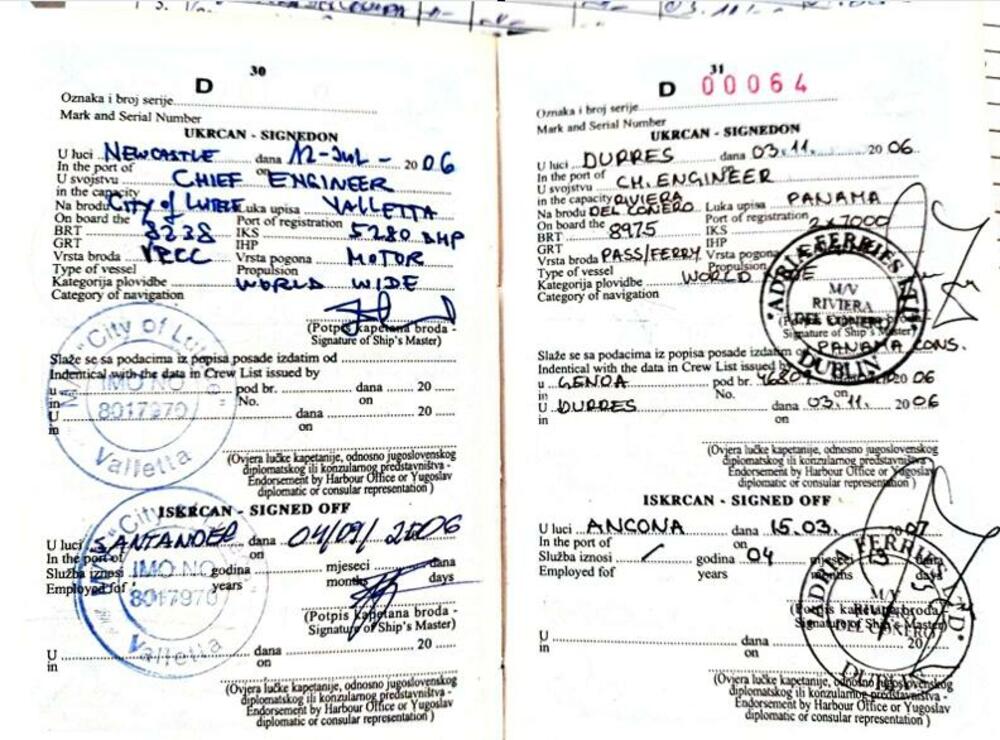 30
D
Oznaka i broj serije
Mark and Serial Number
UKRCAN - SIGNEDON
U luci NEWCASTLE dana 12-JUL- 2006
In the port of on
U svojstvu CHIEF ENGINEER
in the capacity
Na brodu CITY OF Luka upisa VALLETTA
On board the Port of registration
BRT 8238 IKS 5280 BHP
GRT IHP
Vrsta broda Vrsta pogona MOTOR
Type of vessel Propulsion
Kategorija plovidbe WORLD WIDE
Category of navigation
(Potpis kapetana broda -
Signature of Ship's Master)
Slaže se sa podacima iz popisa posade izdatim od
Indentical with the data in Crew List issued by
u pod br. dana 20
in No. on
U dana 20
in on
(Ovjera lučke kapetanije, odnosno jugoslovenskog
diplomatskog ili konzularnog predstavništva -
Endorsement by Harbour Office or Yugoslav
diplomatic or consular representation)
"City of
IMO NO
8017970
Valletta
ISKRCAN - SIGNED OFF
U luci SANTANDER dana 04/09/2006
In the port of on
Služba iznosi godina mjeseci dana
Employed fof years months days
(Potpis kapetana broda -
Signature of Ship's Master)
U dana 20
in on
(Ovjera lučke kapetanije, odnosno jugoslovenskog
diplomatskog ili konzularnog predstavništva -
Endorsement by Harbour Office or Yugoslav
diplomatic or consular representation)
City
IMO NO
8017970
Valletta
31
D 00064
Oznaka i broj serije
Mark and Serial Number
UKRCAN - SIGNEDON
U luci DURRES dana 03.11. 2006.
In the port of on
U svojstvu CH. ENGINEER
in the capacity RIVIERA
Na brodu DEL CONERO Luka upisa PANAMA
On board the Port of registration
BRT 8975 IKS 2x7000
GRT IHP
Vrsta broda PASS/FERRY Vrsta pogona
Type of vessel Propulsion
Kategorija plovidbe WORLD WIDE
Category of navigation
ADRIA FERRIES LTD
M/V
RIVIERA
DEL CONERO
DUBLIN
Signature of Ship's Master)
Slaže se sa podacima iz popisa posade izdatim od PANAMA CONS.
Indentical with the data in Crew List issued by
u GENOA pod br. 2006
in No. on
U DURRES dana 03.11. 2006
in on
(Ovjera lučke kapetanije, odnosno jugoslovenskog
diplomatskog ili konzularnog predstavništva -
Endorsement by Harbour Office or Yugoslav
diplomatic or consular representation)
ISKRCAN - SIGNED OFF
U luci ANCONA dana 15.03. 2007
In the port of on
Služba iznosi / godina 04 mjeseci dana
Employed fof years months days
(Potpis kapetana broda -
Signature of Ship's Master)
U dana 20
in on
(Ovjera lučke kapetanije, odnosno jugoslovenskog
diplomatskog ili konzularnog predstavništva -
Endorsement by Harbour Office or Yugoslav
diplomatic or consular representation)
FERRIES
M/V
DEL CONERO
DUBLIN